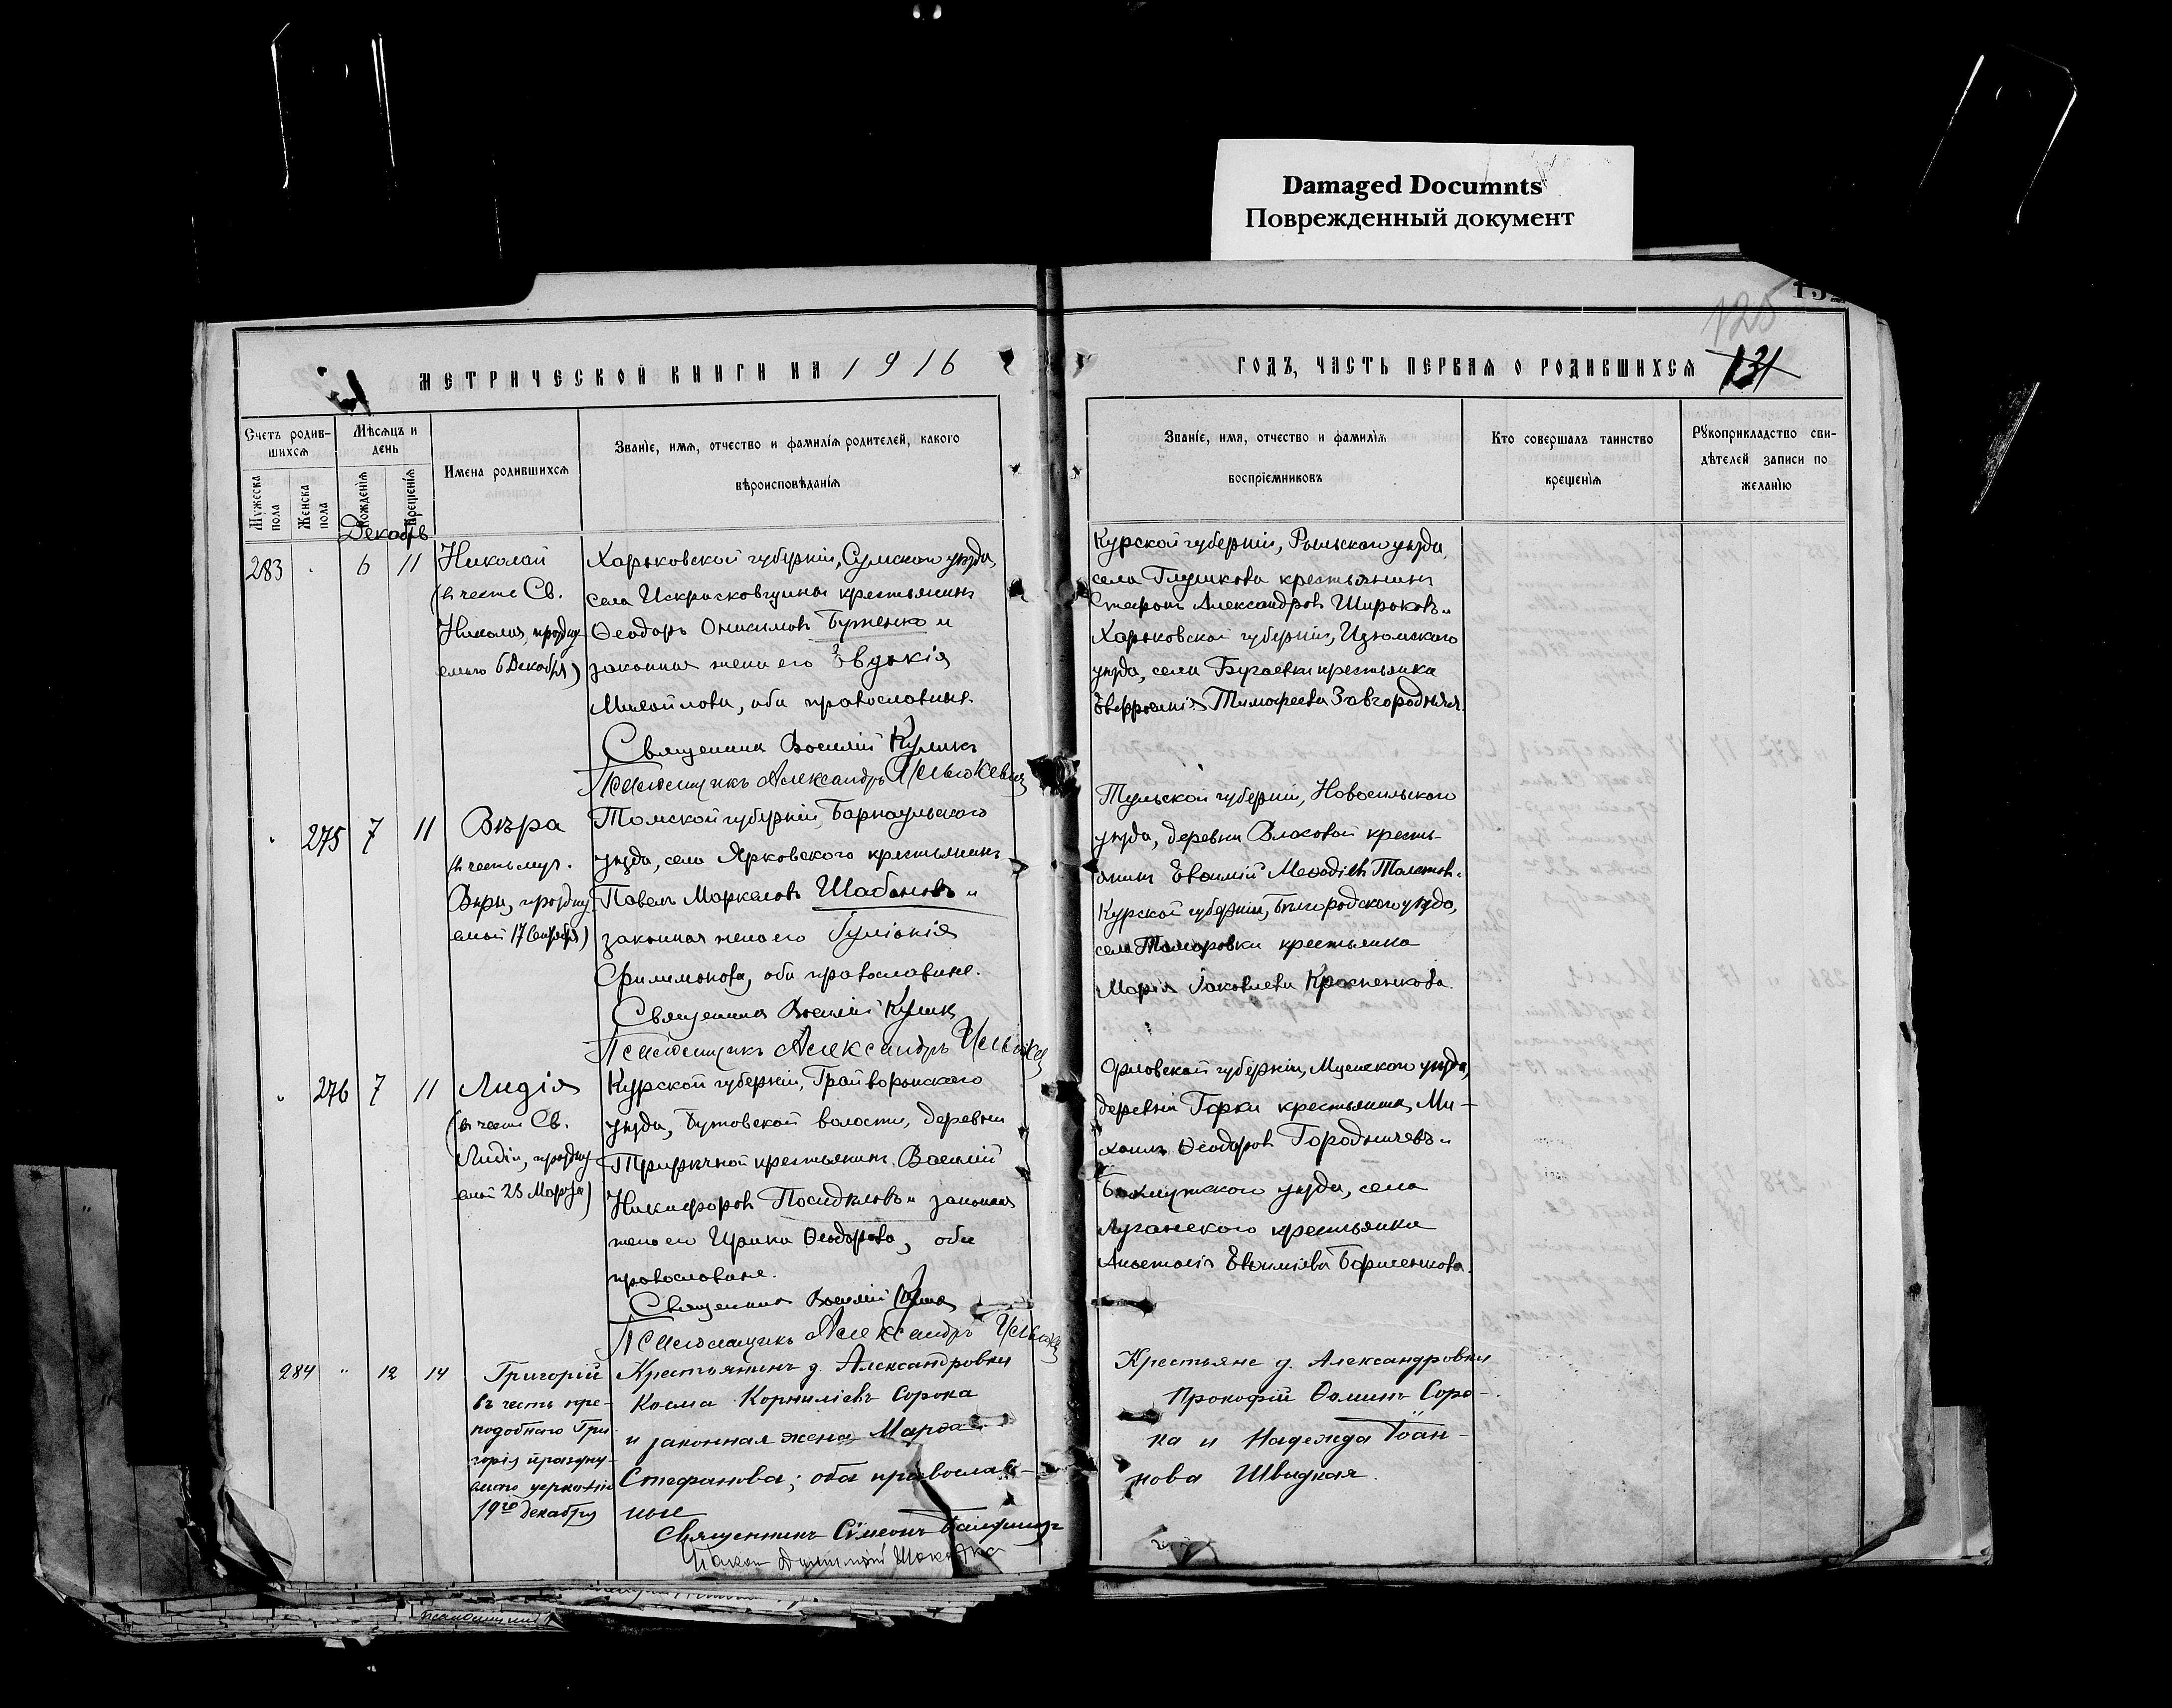 Damaged Documnts
Поврежденный документ
125
131
МЕТРИЧЕСКОЙ КНИГИ НА 1916
ГОДЪ, ЧАСТЬ ПЕРВАЯ О РОДИВШИХСЯ
Счетъ родив-
шихся
Мужеска пола
Женска пола
Мѣсяцъ и день
Рожденія
Крещенія
Имена родившихся
Званіе, имя, отчество и фамилія родителей, какого
вѣроисповѣданія
Званіе, имя, отчество и фамилія
воспріемниковъ
Кто совершалъ таинство
крещенія
Рукоприкладство сви-
дѣтелей записи по
желанію
Декабрь
283 6 11
Николай
(въ честь Св.
Николая, праздну-
емаго 6 Декабря)
Харьковской губерніи, Сумского уѣзда,
села Искрисковщины крестьянинъ
Ѳеодоръ Онисимовъ Бутенко и
законная жена его Евдокія
Михайлова, оба православные.
Священникъ Василій Куликъ
Псаломщикъ Александръ
Курской губерніи, Рыльскаго уѣзда,
села Глушкова крестьянинъ
Александровъ Широковъ и
Харьковской губерніи, Изюмскаго
уѣзда, села Бугаевки крестьянка
Евфросинія Тимофеева Завгородняя.
275 7 11
Вѣра
(въ честь муч.
Вѣры, праздну-
емой 17 Сентября)
Томской губерніи, Барнаульскаго
уѣзда, села Ярковского крестьянинъ
Павелъ Маркеловъ Шабановъ и
законная жена его Гуліанія
Филимонова, оба православные.
Священникъ Василій Куликъ
Псаломщикъ Александръ
Тульской губерніи, Новосильскаго
уѣзда, деревни Власовой кресть-
янинъ Евѳимій Меѳодіевъ
Курской губерніи, Бѣлгородскаго уѣзда,
села Томаровки крестьянка
Марія Іаковлева Красненкова.
276 7 11
Лидія
(въ честь Св.
Лидіи, праздну-
емой 23 Марта)
Курской губерніи, Грайворонскаго
уѣзда, Бутовской волости, деревни
крестьянинъ Василій
Никифоровъ Посидѣловъ и законная
жена его Ирина Ѳеодорова, оба
православные.
Священникъ Василій Куликъ
Псаломщикъ Александръ
Орловской губерніи, Мценскаго уѣзда,
деревни Горки крестьянинъ Ми-
хаилъ Ѳеодоровъ Городничевъ и
Бахмутскаго уѣзда, села
Луганскаго крестьянка
Анастасія Евѳиміева Борисенкова.
284 " 12 14
Григорій
въ честь пре-
подобнаго Гри-
горія праздну-
емаго церковію
19го декабря
Крестьянинъ д. Александровки
Косма Корниліевъ Сорока
и законная жена Марѳа
Стефанова; оба православ-
ные
Священникъ Сѵмеонъ
Крестьяне д. Александровки
Прокофій Ѳоминъ Соро-
ка и Надежда Іоан-
нова Швидкая.